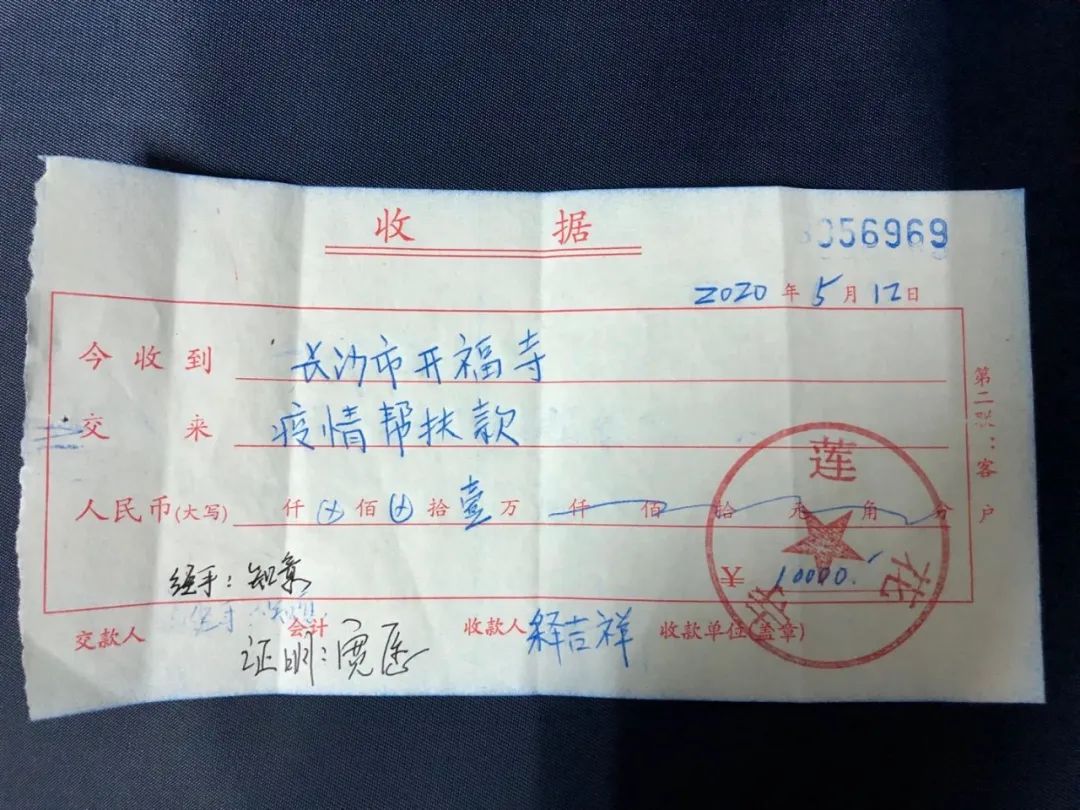 收 据
056969
2020 年 5 月 12 日
今 收 到 长沙市开福寺
交 来 疫情帮扶款
人民币(大写) 仟 佰 拾 壹 万 仟 佰 拾 元 角 分
¥ 10000.
经手:
交款人 会计 收款人 释吉祥 收款单位(盖章)
证明:
第二联:客户
莲花